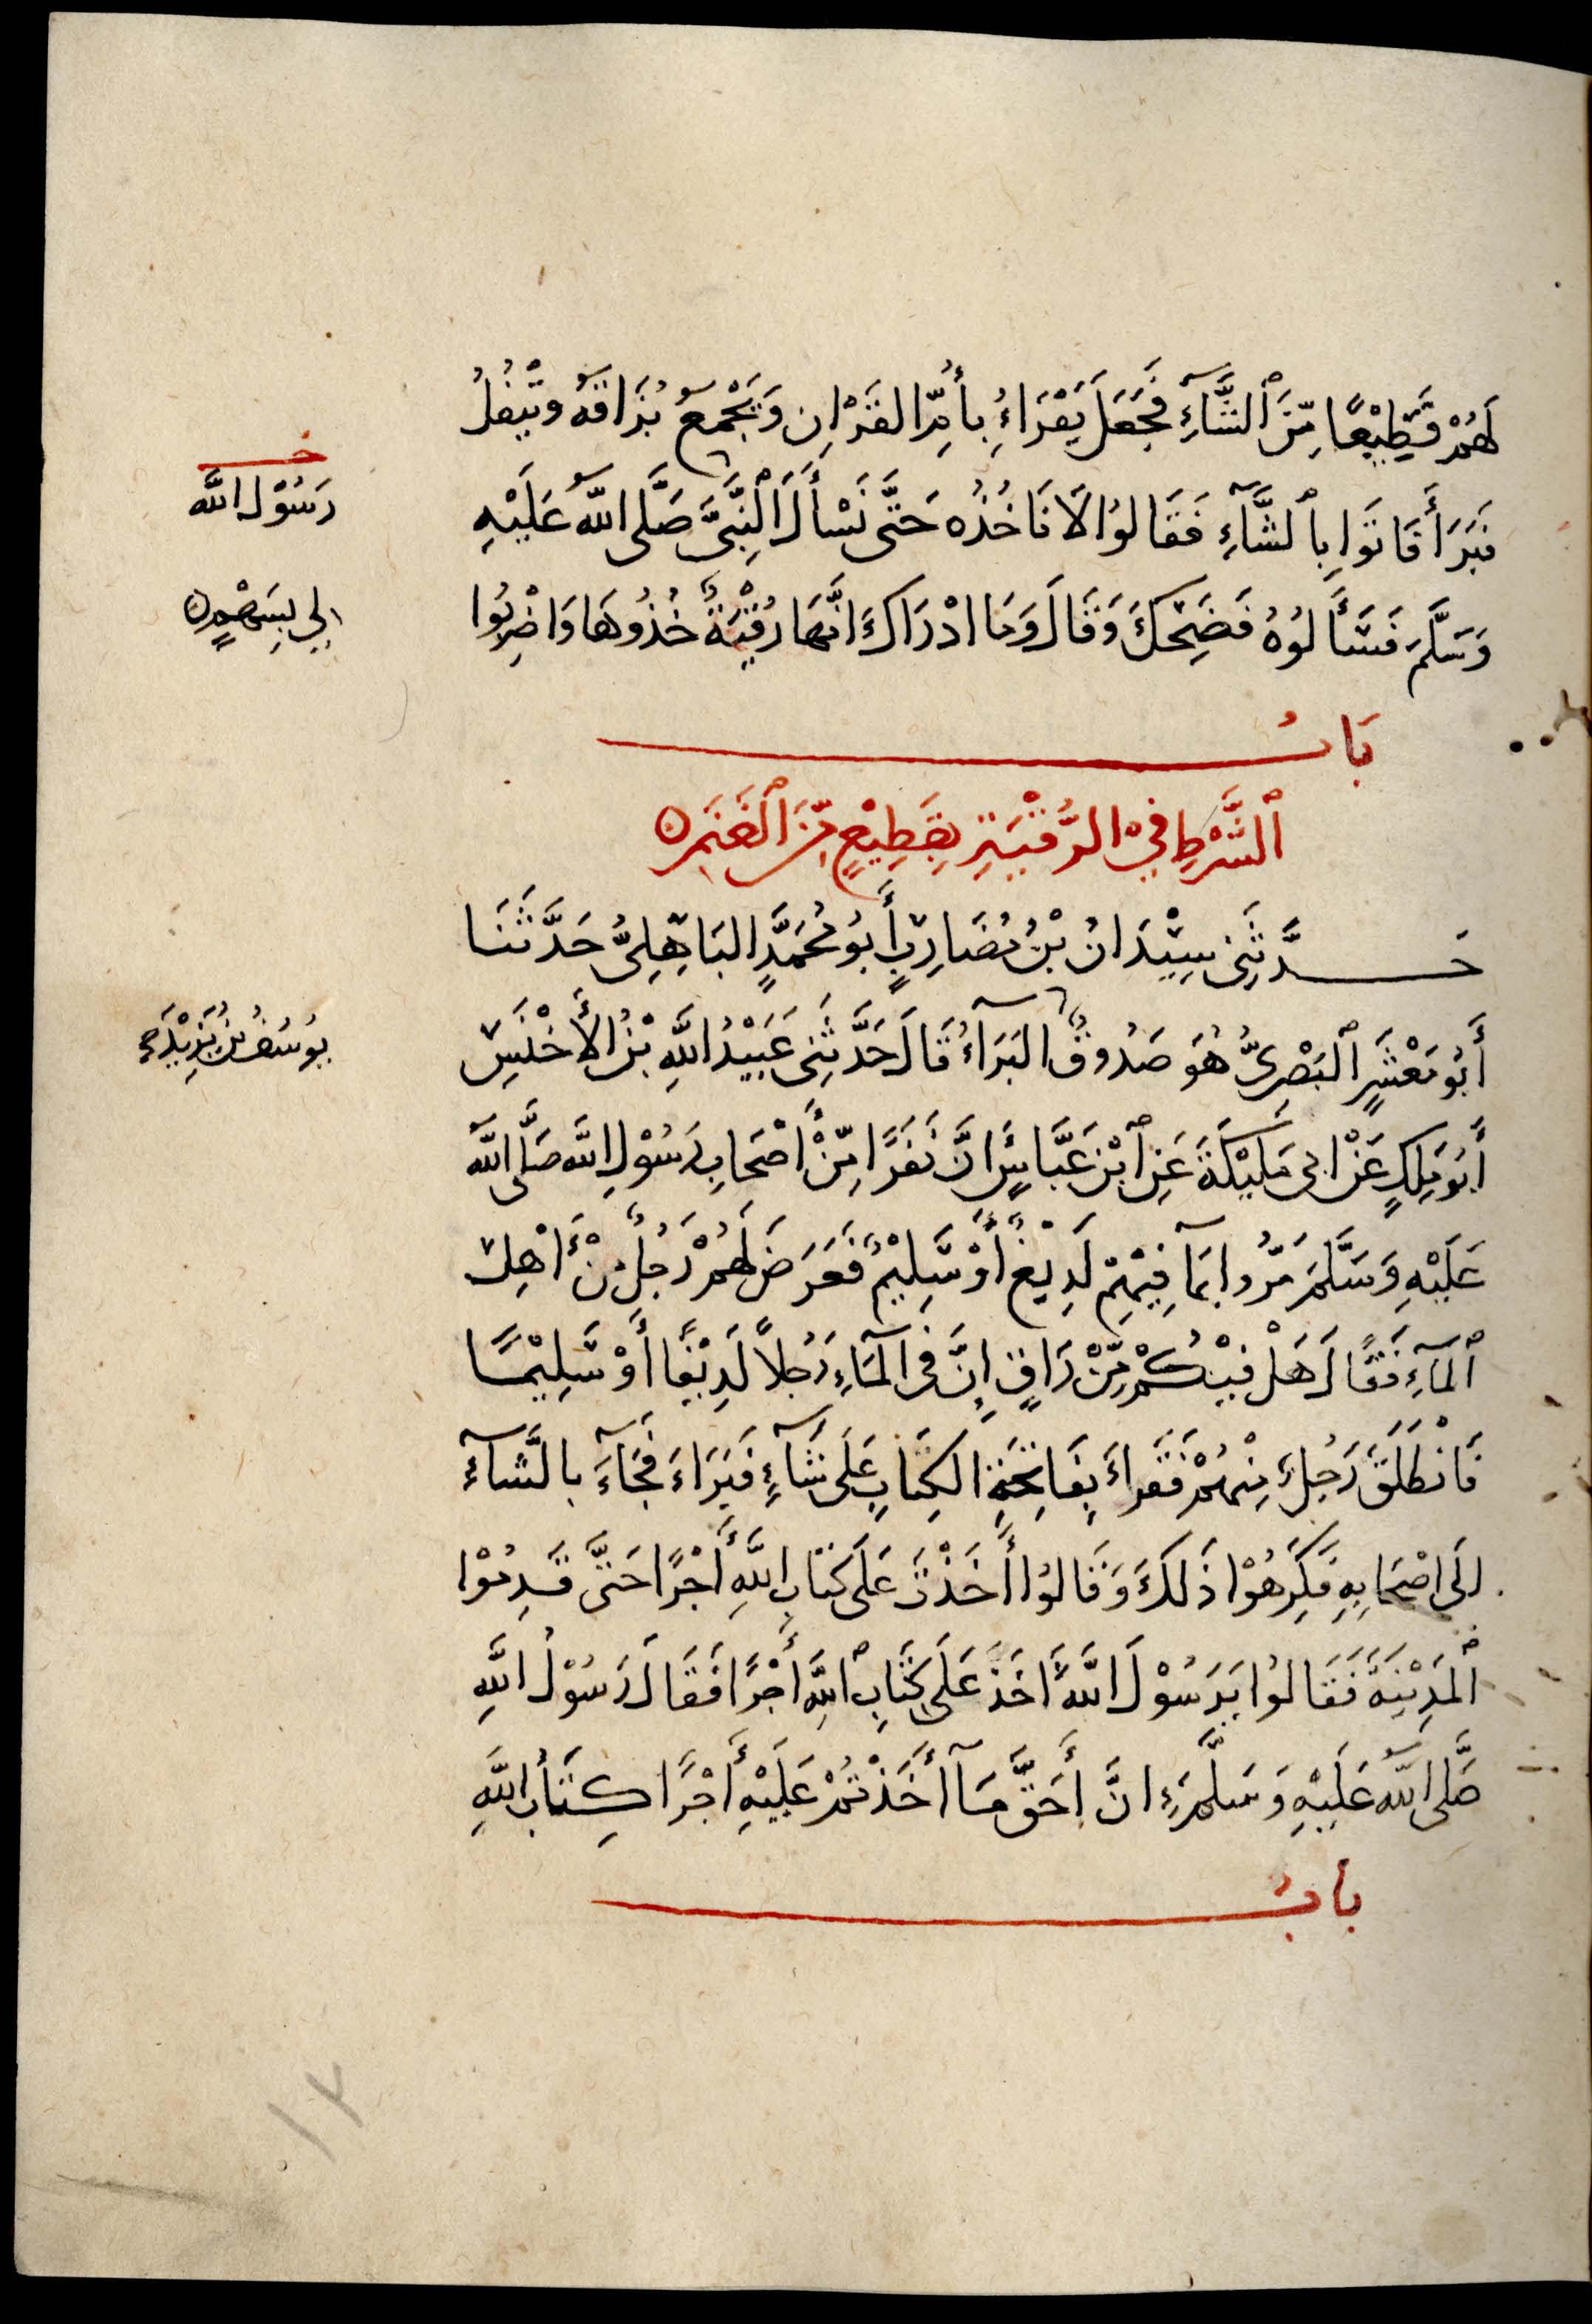 لَهُمْ قَطِيْعًا مِّنَ ٱلشَّآءِ فَجَعَلَ يَقْرَاءُ بِأُمِّ القُرْاٰنِ وَيَجْمَعُ بُزَاقَهُ وَيَتْفُلُ
فَبَرَأَ فَاتَوْا بِٱلشَّآءِ فَقَالُوْا لَا نَاخُذُه حَتّٰى نَسْأَلَ ٱلنَّبِىَّ صَلَّى اللّٰهُ عَلَيْهِ
رَسُوْلَ اللّٰه
خـ
وَسَلَّمَ فَسَأَلُوْهُ فَضَحِكَ وَقَالَ وَمَا ادْرَاكَ انَّهَا رُقْيَةٌ خُذُوهَا وَاضْرِبُوا
لِى بِسَهْمٍ
بَابُ
ٱلشَّرْطِ فِيْ الرُّقْيَةِ بِقَطِيْعٍ مِّنَ ٱلغَنَمِ
حَدَّثَنِى سِيْدَانُ بْنُ مُضَارِبٍ أَبُو مُحَمَّدٍ البَاهِلِىُّ حَدَّثَنَا
أَبُو مَعْشَرٍ ٱلْبَصْرِىُّ هُوَ صَدُوقٌ البَرَآءُ قَالَ حَدَّثَنِى عُبَيْدُ اللّٰهِ بْنُ الأَخْنَسِ
يُوسُفُ بْنُ يَزِيْدَ
أَبُو مٰلِكٍ عَنْ ابِى مُلَيْكَةَ عَنِ ٱبْنِ عَبَّاسٍ انَّ نَفَرًا مِّنْ أَصْحَابِ رَسُوْلِ اللّٰه صَلَّى اللّٰه
عَلَيْهِ وَسَلَّمَ مَرُّوا بِمَآ فِيْهِمْ لَدِيْغٌ أَوْ سَلِيْمٌ فَعَرَضَ لَهُمْ رَجُلٌ مِنْ أَهْلِ
ٱلمَآءِ فَقَالَ هَلْ فِيْكُمْ مِّنْ رَاقٍ اِنَّ فِى المَآءِ رَجُلاً لَدِيْغًا أَوْ سَلِيْمًا
فَانْطَلَقَ رَجُلٌ مِنْهُمْ فَقَراءَ بِفَاتِحَةِ الكِتَابِ عَلَى شَآءٍ فَبَرَاءَ فَجَآءَ بالشَّآءِ
الَى اصْحَابِهِ فَكَرِهُوْا ذَلكَ وَقَالُوْا أَخَذْتَ عَلَى كتَابِ اللّٰهِ أَجْرًا حَتَّى قَدِمُوْا
ٱلمَدِيْنَةَ فَقَالُوْا يَرَسُوْلَ اللّٰهِ أَخَذَ عَلَى كِتَابِ اللّٰهِ أَجْرًا فَقَالَ رَسُوْلُ اللّٰهِ
صَلَّى اللّٰهُ عَلَيْهِ وَسَلَّمَ اِنَّ أَحَقَّ مَآ أَخَذْتُمْ عَلَيْهِ أَجْرًا كِتَابُ اللّٰهِ
بابُ
١٢